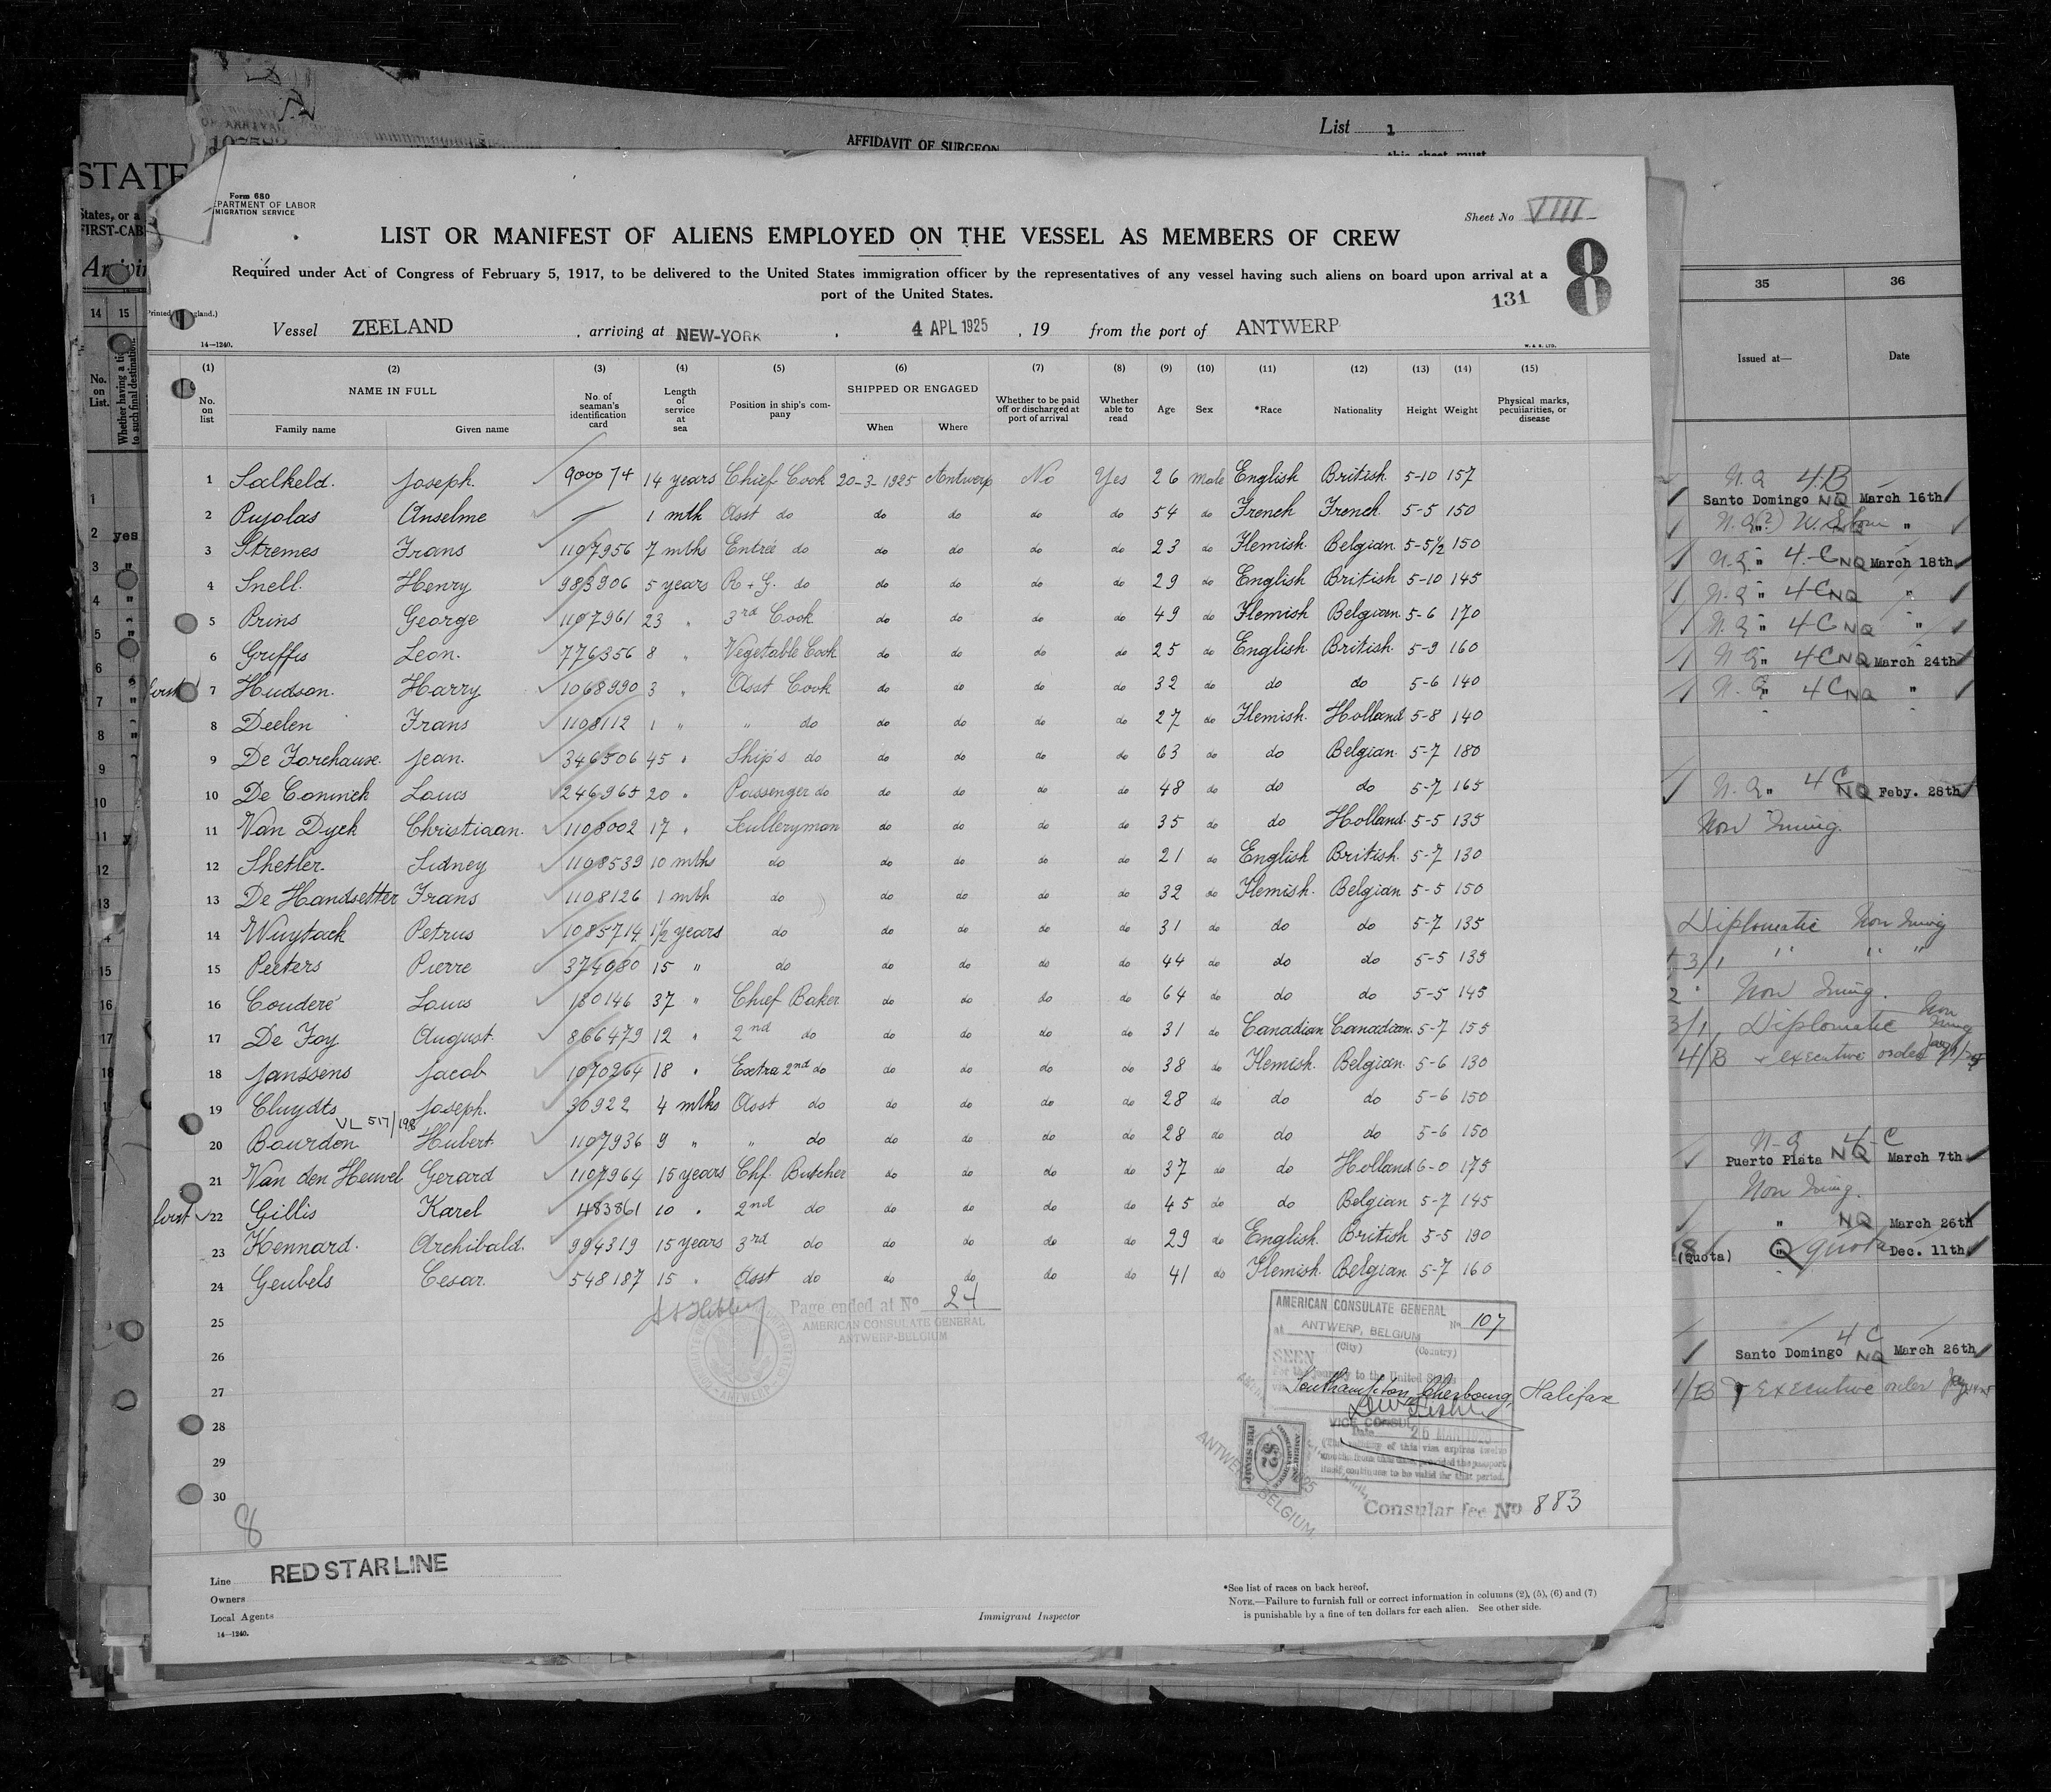 AFFIDAVIT OF SURGEON
List 1
this sheet must
STATE
States, or a
FIRST-CAB
Form 680
DEPARTMENT OF LABOR
IMMIGRATION SERVICE
Sheet No VIII
LIST OR MANIFEST OF ALIENS EMPLOYED ON THE VESSEL AS MEMBERS OF CREW
8
Required under Act of Congress of February 5, 1917, to be delivered to the United States immigration officer by the representatives of any vessel having such aliens on board upon arrival at a
port of the United States.
131
Vessel ZEELAND, arriving at NEW-YORK, 4 APL 1925, 19 from the port of ANTWERP
14—1240.
W. & S. LTD.
(1) (2) (3) (4) (5) (6) (7) (8) (9) (10) (11) (12) (13) (14) (15)
No. on list NAME IN FULL Family name Given name No. of seaman's identification card Length of service at sea Position in ship's company SHIPPED OR ENGAGED When Where Whether to be paid off or discharged at port of arrival Whether able to read Age Sex *Race Nationality Height Weight Physical marks, peculiarities, or disease
1 Salkeld. Joseph. 900074 14 years Chief Cook 20-3-1925 Antwerp No Yes 26 Male English British. 5-10 157
2 Pujolas Anselme — 1 mth Asst do do do do do 54 do French French. 5-5 150
3 Stremes Frans 1107956 7 mths Entrée do do do do do 23 do Flemish. Belgian. 5-5½ 150
4 Snell. Henry 983906 5 years R+G. do do do do do 29 do English British 5-10 145
5 Prins George 1107961 23 " 3rd Cook do do do do 49 do Flemish Belgian 5-6 170
6 Griffis Leon. 776356 8 " Vegetable Cook do do do do 25 do English British. 5-9 160
first 7 Hudson. Harry 1068990 3 " Asst Cook do do do do 32 do do do 5-6 140
8 Deelen Frans 1108112 1 " " do do do do do 27 do Flemish. Holland 5-8 140
9 De Forchause. Jean. 346506 45 " Ship's do do do do do 63 do do Belgian. 5-7 180
10 De Coninck Louis 246965 20 " Passenger do do do do do 48 do do do 5-7 165
11 Van Dyck Christiaan. 1108002 17 " Sculleryman do do do do 35 do do Holland. 5-5 135
12 Shetler. Sidney 1108539 10 mths do do do do do 21 do English British. 5-7 130
13 De Handsetter Frans 1108126 1 mth do do do do do 32 do Flemish. Belgian 5-5 150
14 Wuytack Petrus 1085714 1½ years do do do do do 31 do do do 5-7 135
15 Peeters Pierre 374080 15 " do do do do do 44 do do do 5-5 135
16 Couderé Louis 180146 37 " Chief Baker do do do do 64 do do do 5-5 145
17 De Foy August. 866479 12 " 2nd do do do do do 31 do Canadian Canadian. 5-7 155
18 Janssens Jacob 1070264 18 " Extra 2nd do do do do do 38 do Flemish. Belgian. 5-6 130
19 Cluydts Joseph. 30922 4 mths Asst do do do do do 28 do do do 5-6 150
VL 517/198
20 Bourdon Hubert. 1107936 9 " " do do do do do 28 do do do 5-6 150
21 Van den Heuvel Gerard 1107964 15 years Chf. Butcher do do do do 37 do do Holland 6-0 175
first 22 Gillis Karel 483861 10 " 2nd do do do do do 45 do do Belgian 5-7 145
23 Kennard. Archibald. 994319 15 years 3rd do do do do do 29 do English. British 5-5 190
24 Geubels Cesar. 548187 15 " Asst do do do do do 41 do Flemish. Belgian. 5-7 160
25
26
27
28
29
30
Page ended at No 24
AMERICAN CONSULATE GENERAL
ANTWERP-BELGIUM
AMERICAN CONSULATE GENERAL
No 107
at ANTWERP, BELGIUM
(City) (Country)
SEEN
For the journey to the United States
Southampton, Cherbourg, Halifax
VICE CONSUL
Date 26 MAR 1925
(The validity of this visa expires twelve
months from this date, provided the passport
itself continues to be valid for that period.
ANTWERP BELGIUM
Consular fee No 883
8
Line RED STAR LINE
Owners
Local Agents
14—1240.
Immigrant Inspector
*See list of races on back hereof.
NOTE.—Failure to furnish full or correct information in columns (2), (5), (6) and (7)
is punishable by a fine of ten dollars for each alien. See other side.
14 15
No. on List.
Whether having a ti
to such final destination.
2 yes
35 36
Issued at— Date
N.Q 4-B
Santo Domingo NQ March 16th
4-C NQ March 18th
4-C NQ "
4-C NQ "
4C NQ March 24th
4C NQ "
4C NQ Feby. 28th
Non Immig.
Diplomatic Non Immig
" " "
Non Immig.
Diplomatic Non Immig
4/B executive order
N-Q 4-C
Puerto Plata NQ March 7th
Non Immig.
" NQ March 26th
(Quota) Q quota Dec. 11th
4 C
Santo Domingo NQ March 26th
executive order